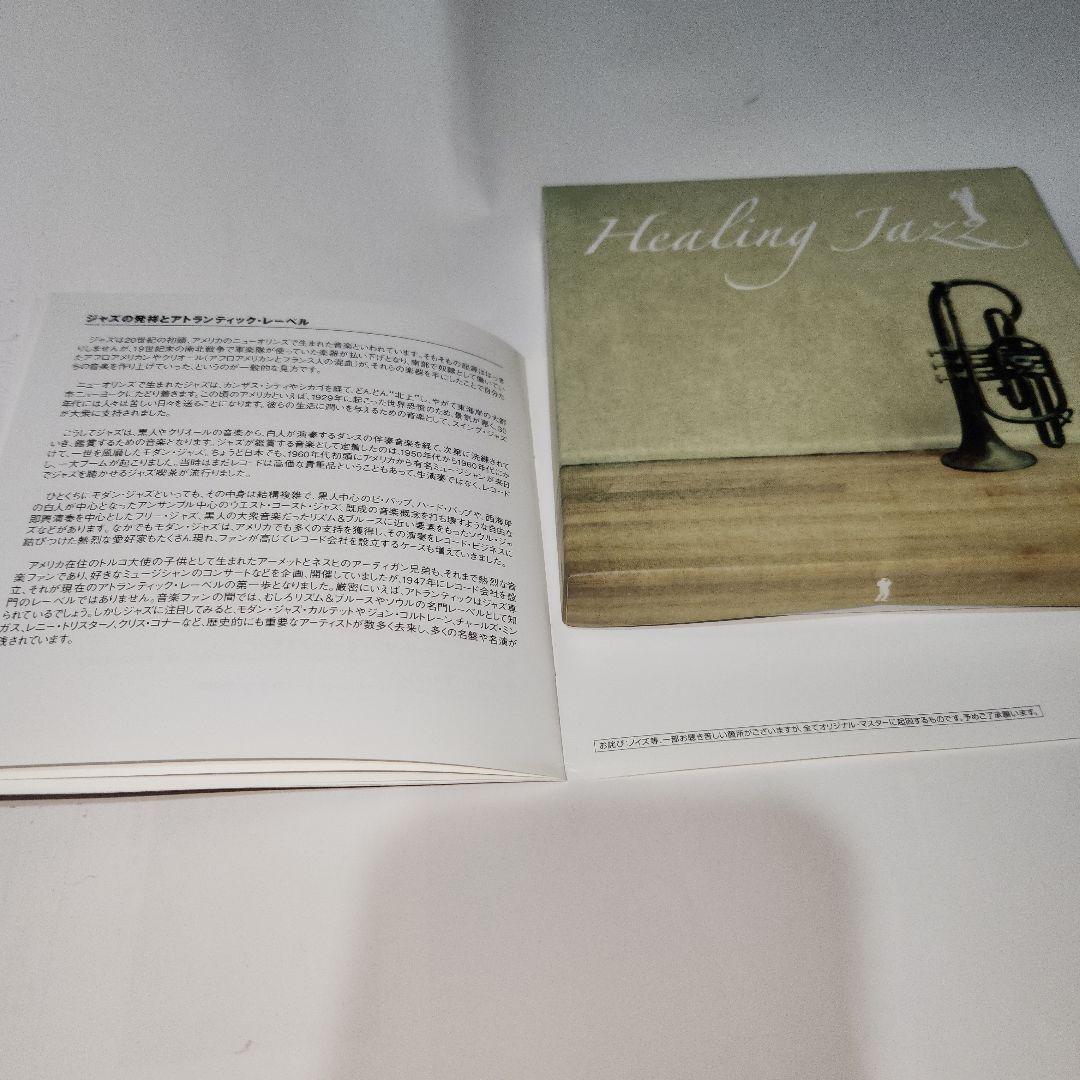 ジャズの発祥とアトランティック・レーベル
ジャズは20世紀の初頭、アメリカのニューオリンズで生まれた音楽といわれています。そもそもの起源ははっき
りしませんが、19世紀末の南北戦争で軍楽隊が使っていた楽器が払い下げとなり、南部で奴隷として働いてい
たアフロアメリカンやクリオール(アフロアメリカンとフランス人の混血)が、それらの楽器を手にしたことで自分た
ちの音楽を作り上げていった、というのが一般的な見方です。
ニューオリンズで生まれたジャズは、カンザス・シティやシカゴを経て、どんどん“北上”し、やがて東海岸の大都
市ニューヨークにたどり着きます。この頃のアメリカといえば、1929年に起こった世界恐慌のため、景気が悪く、30
年代には人々は苦しい日々を送ることになります。彼らの生活に潤いを与えるための音楽として、スイング・ジャズ
が大衆に支持されました。
こうしてジャズは、黒人やクリオールの音楽から、白人が演奏するダンスの伴奏音楽を経て、次第に洗練されて
いき、鑑賞するための音楽となります。ジャズが鑑賞する音楽として定着したのは、1950年代から1960年代にか
けて、一世を風靡したモダン・ジャズ。ちょうど日本でも、1960年代初頭にアメリカから有名ミュージシャンが来日
し、一大ブームが起こりました。当時はまだレコードは高価な貴重品ということもあって、生演奏ではなく、レコード
でジャズを聴かせるジャズ喫茶が流行りました。
ひとくちに モダン・ジャズといっても、その中身は結構複雑で、黒人中心のビ・バップ、ハード・バップや、西海岸
の白人が中心となったアンサンブル中心のウエスト・コースト・ジャズ、既成の音楽概念を打ち壊すような自由な
即興演奏を中心としたフリー・ジャズ、黒人の大衆音楽だったリズム&ブルースに近い要素をもったソウル・ジャ
ズなどがあります。なかでもモダン・ジャズは、アメリカでも多くの支持を獲得し、その演奏をレコード・ビジネスに
結びつけた熱烈な愛好家もたくさん現れ、ファンが高じてレコード会社を設立するケースも増えていきました。
アメリカ在住のトルコ大使の子供として生まれたアーメットとネスヒのアーティガン兄弟も、それまで熱烈な音
楽ファンであり、好きなミュージシャンのコンサートなどを企画、開催していましたが、1947年にレコード会社を設
立、それが現在のアトランティック・レーベルの第一歩となりました。厳密にいえば、アトランティックはジャズ専
門のレーベルではありません。音楽ファンの間では、むしろリズム&ブルースやソウルの名門レーベルとして知
られているでしょう。しかしジャズに注目してみると、モダン・ジャズ・カルテットやジョン・コルトレーン、チャールズ・ミン
ガス、レニー・トリスターノ、クリス・コナーなど、歴史的にも重要なアーティストが数多く去来し、多くの名盤や名演が
残されています。
Healing Jazz
お詫び:ノイズ等、一部お聴き苦しい箇所がございますが、全てオリジナル・マスターに起因するものです。予めご了承願います。